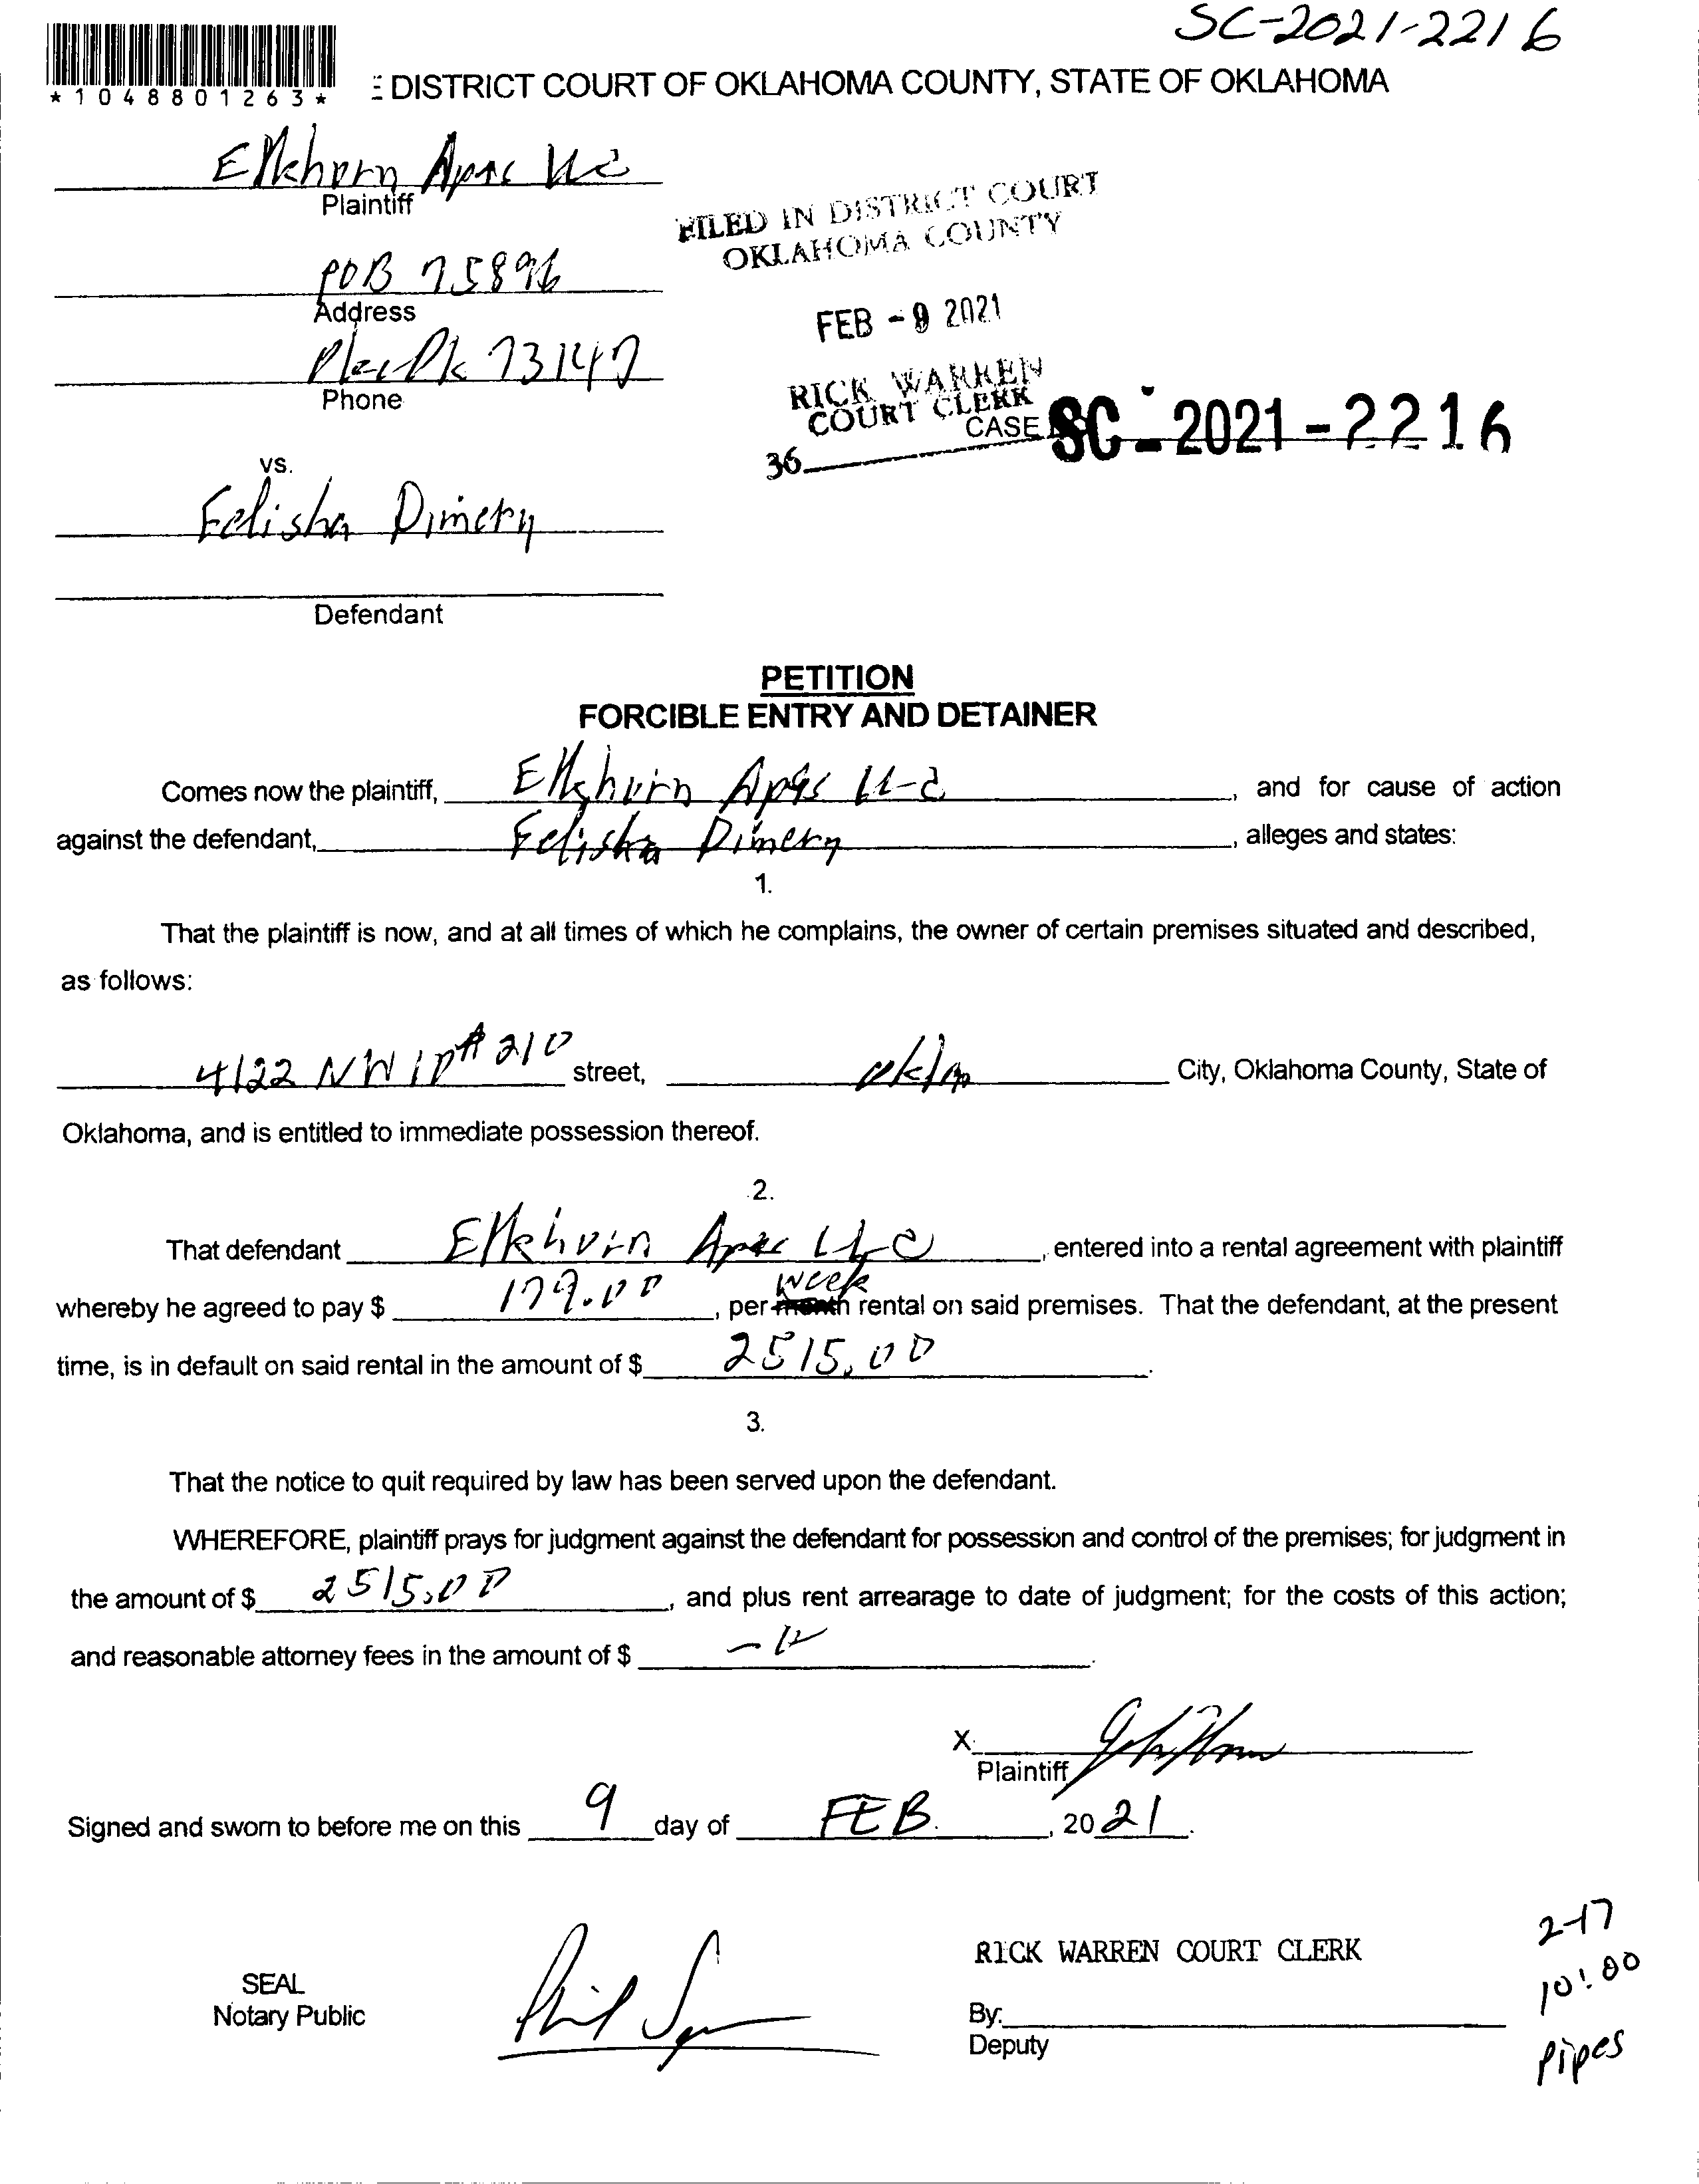 SC-2021-2216
*1048801263*
DISTRICT COURT OF OKLAHOMA COUNTY, STATE OF OKLAHOMA
Elkhorn Apts LLC
Plaintiff
FILED IN DISTRICT COURT
OKLAHOMA COUNTY
POB 75896
Address
FEB - 9 2021
73147
Phone
RICK WARREN
COURT CLERK
CASE SC - 2021 - 2216
36
vs.
Felisha Dimery
Defendant
PETITION
FORCIBLE ENTRY AND DETAINER
Comes now the plaintiff, Elkhorn Apts LLC, and for cause of action
against the defendant, Felisha Dimery, alleges and states:
1.
That the plaintiff is now, and at all times of which he complains, the owner of certain premises situated and described,
as follows:
4122 NW 10 # 210 street, Okla City, Oklahoma County, State of
Oklahoma, and is entitled to immediate possession thereof.
2.
That defendant Elkhorn Apts LLC, entered into a rental agreement with plaintiff
week
whereby he agreed to pay $ 179.00, per month rental on said premises. That the defendant, at the present
time, is in default on said rental in the amount of $ 2515.00.
3.
That the notice to quit required by law has been served upon the defendant.
WHEREFORE, plaintiff prays for judgment against the defendant for possession and control of the premises; for judgment in
the amount of $ 2515.00, and plus rent arrearage to date of judgment; for the costs of this action;
and reasonable attorney fees in the amount of $
X
Plaintiff
Signed and sworn to before me on this 9 day of FEB., 2021.
2-17
RICK WARREN COURT CLERK
10:00
SEAL
Notary Public
By:
Deputy
Pipes